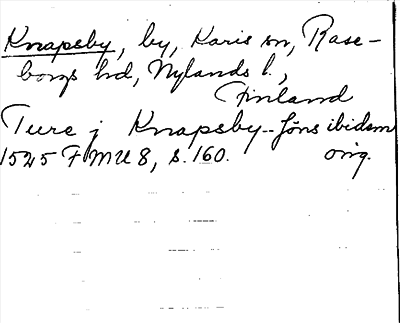 Knapsby, by, Karis sn, Rase-
borgs hd, Nylands l.,
Finland
Ture j Knapsby -- Jöns ibidem
1525 FMU 8, s. 160. orig.